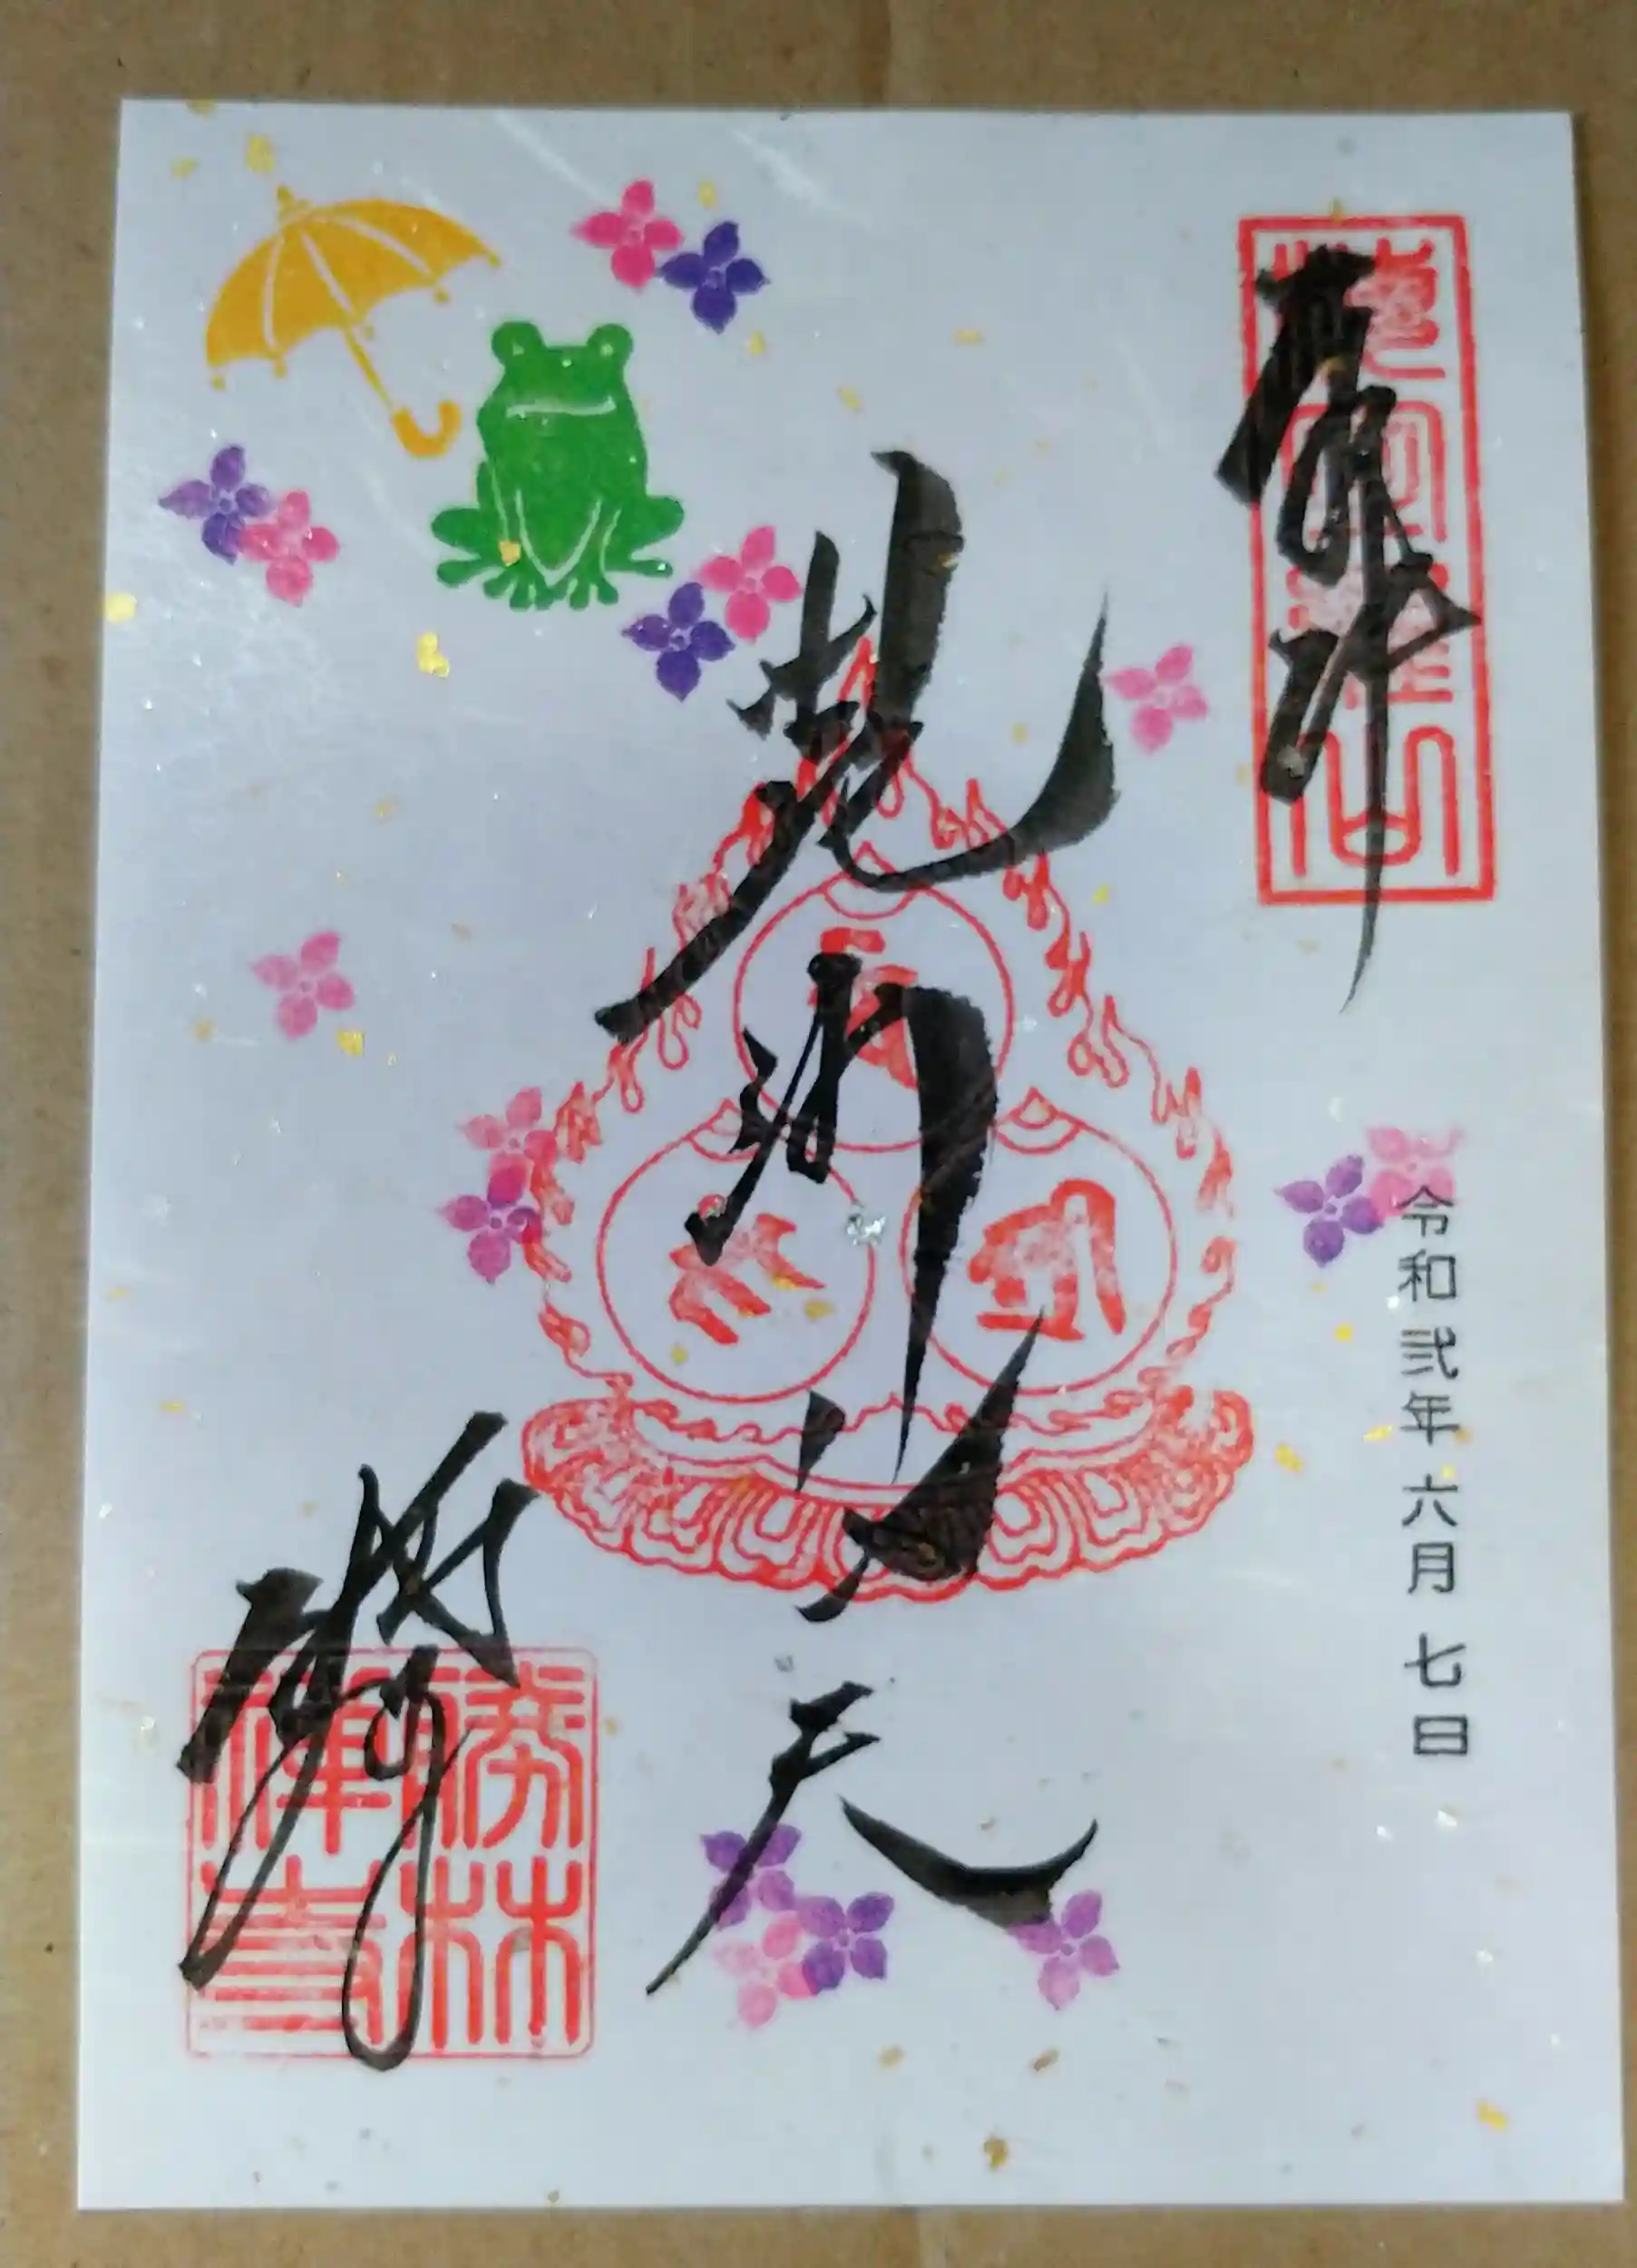 奉拝
令和弐年六月七日
毘沙門天
勝林寺
勝林禅寺